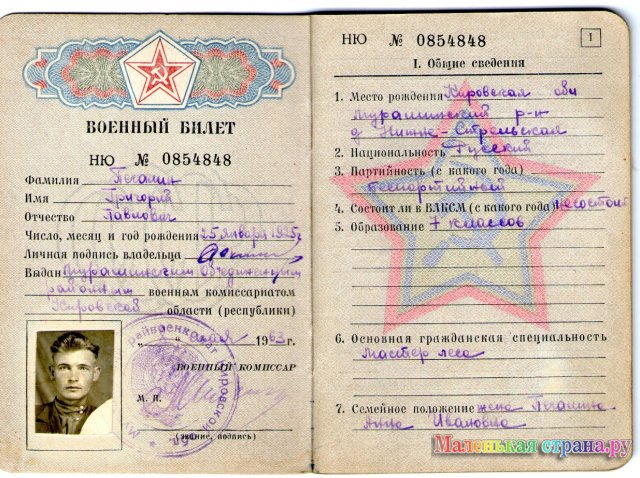 ВОЕННЫЙ БИЛЕТ
НЮ № 0854848
Фамилия Пегашин
Имя Григорий
Отчество Павлович
Число, месяц и год рождения 25 января 1925 г
Личная подпись владельца
Выдан Мурашинским Объединенным
районным военным комиссариатом
Кировской области (республики)
" " мая 1963 г.
ВОЕННЫЙ КОМИССАР
М. П.
(звание, подпись)
райвоенкомат Кировской
НЮ № 0854848
1
I. Общие сведения
1. Место рождения Кировская обл
Мурашинский р-н
д Нижне-Стрельская
2. Национальность Русский
3. Партийность (с какого года)
беспартийный
4. Состоит ли в ВЛКСМ (с какого года) несостоит
5. Образование 7 классов
6. Основная гражданская специальность
Мастер леса
7. Семейное положение жена Пегашина
Анна Ивановна
Маленькая страна.ру